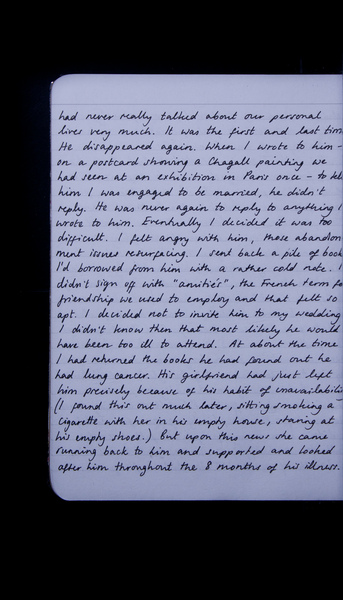 had never really talked about our personal
lives very much. It was the first and last tim
He disappeared again. When I wrote to him -
on a postcard showing a Chagall painting we
had seen at an exhibition in Paris once - to tell
him I was engaged to be married, he didn't
reply. He was never again to reply to anything I
wrote to him. Eventually I decided it was too
difficult. I felt angry with him, those abandon
ment issues resurfacing. I sent back a pile of book
I'd borrowed from him with a rather cold note. I
didn't sign off with "amitiés", the French term fo
friendship we used to employ and that felt so
apt. I decided not to invite him to my wedding
I didn't know then that most likely he would
have been too ill to attend. At about the time
I had returned the books he had found out he
had lung cancer. His girlfriend had just left
him precisely because of his habit of unavailabili
(I found this out much later, sitting smoking a
cigarette with her in his empty house, staring at
his empty shoes.) But upon this news she came
running back to him and supported and looked
after him throughout the 8 months of his illness.